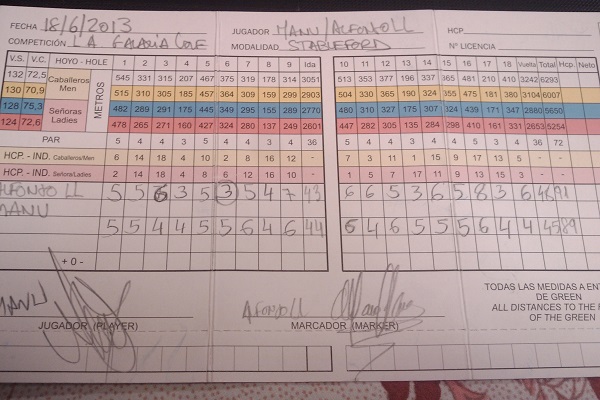 FECHA 18/6/2013 JUGADOR MANU/ALFONSO LL HCP
COMPETICIÓN LA GALAXIA MODALIDAD STABLEFORD Nº LICENCIA
V.S. V.C. HOYO - HOLE 1 2 3 4 5 6 7 8 9 Ida 10 11 12 13 14 15 16 17 18 Vuelta Total Hcp. Neto
132 72,5 Caballeros Men METROS 545 331 315 207 467 375 319 178 314 3051 513 353 377 196 337 365 481 210 410 3242 6293
130 70,9 515 310 305 185 457 364 309 159 299 2903 504 330 365 190 324 355 475 181 380 3104 6007
128 75,3 Señoras Ladies 482 289 291 175 445 349 295 155 289 2770 480 310 327 175 307 324 439 171 347 2880 5650
124 72,6 478 265 271 160 427 324 280 137 249 2601 447 282 305 135 284 298 410 161 331 2653 5254
PAR 5 4 4 3 5 4 4 3 4 36 5 4 4 3 4 4 5 3 4 36 72
HCP - IND. Caballeros/Men 6 14 18 4 10 2 8 16 12 - 7 3 11 1 15 9 17 13 5 - -
HCP - IND. Señora/Ladies 2 14 18 4 8 6 12 16 10 - 1 5 7 17 11 9 13 15 3 - -
ALFONSO LL 5 5 6 3 5 3 5 4 7 43 6 6 5 3 6 5 8 3 6 48 91
MANU 5 5 4 4 5 5 6 4 6 44 6 4 6 5 5 5 6 4 4 45 89
+ 0 -
MANU ALFONSO LL
JUGADOR (PLAYER) MARCADOR (MARKER)
TODAS LAS MEDIDAS A ENT
DE GREEN
ALL DISTANCES TO THE
OF THE GREEN